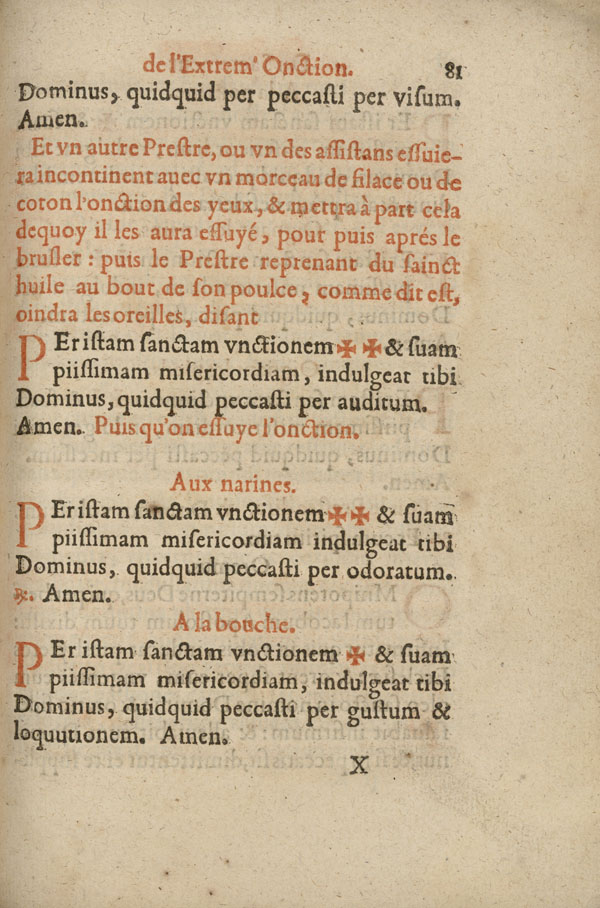 de l'Extrem' Onction. 81
Dominus, quidquid per peccasti per visum.
Amen.
Et vn autre Prestre, ou vn des assistans essuie-
ra incontinent auec vn morceau de filace ou de
coton l'onction des yeux, & mettra à part cela
dequoy il les aura essuyé, pour puis aprés le
brusler : puis le Prestre reprenant du sainct
huile au bout de son poulce, comme dit est,
oindra les oreilles, disant
PEr istam sanctam vnctionem ✠ ✠ & suam
piissimam misericordiam, indulgeat tibi
Dominus, quidquid peccasti per auditum.
Amen. Puis qu'on essuye l'onction.
Aux narines.
PEr istam sanctam vnctionem ✠ ✠ & suam
piissimam misericordiam indulgeat tibi
Dominus, quidquid peccasti per odoratum.
℟. Amen.
A la bouche.
PEr istam sanctam vnctionem ✠ & suam
piissimam misericordiam, indulgeat tibi
Dominus, quidquid peccasti per gustum &
loquutionem. Amen.
X